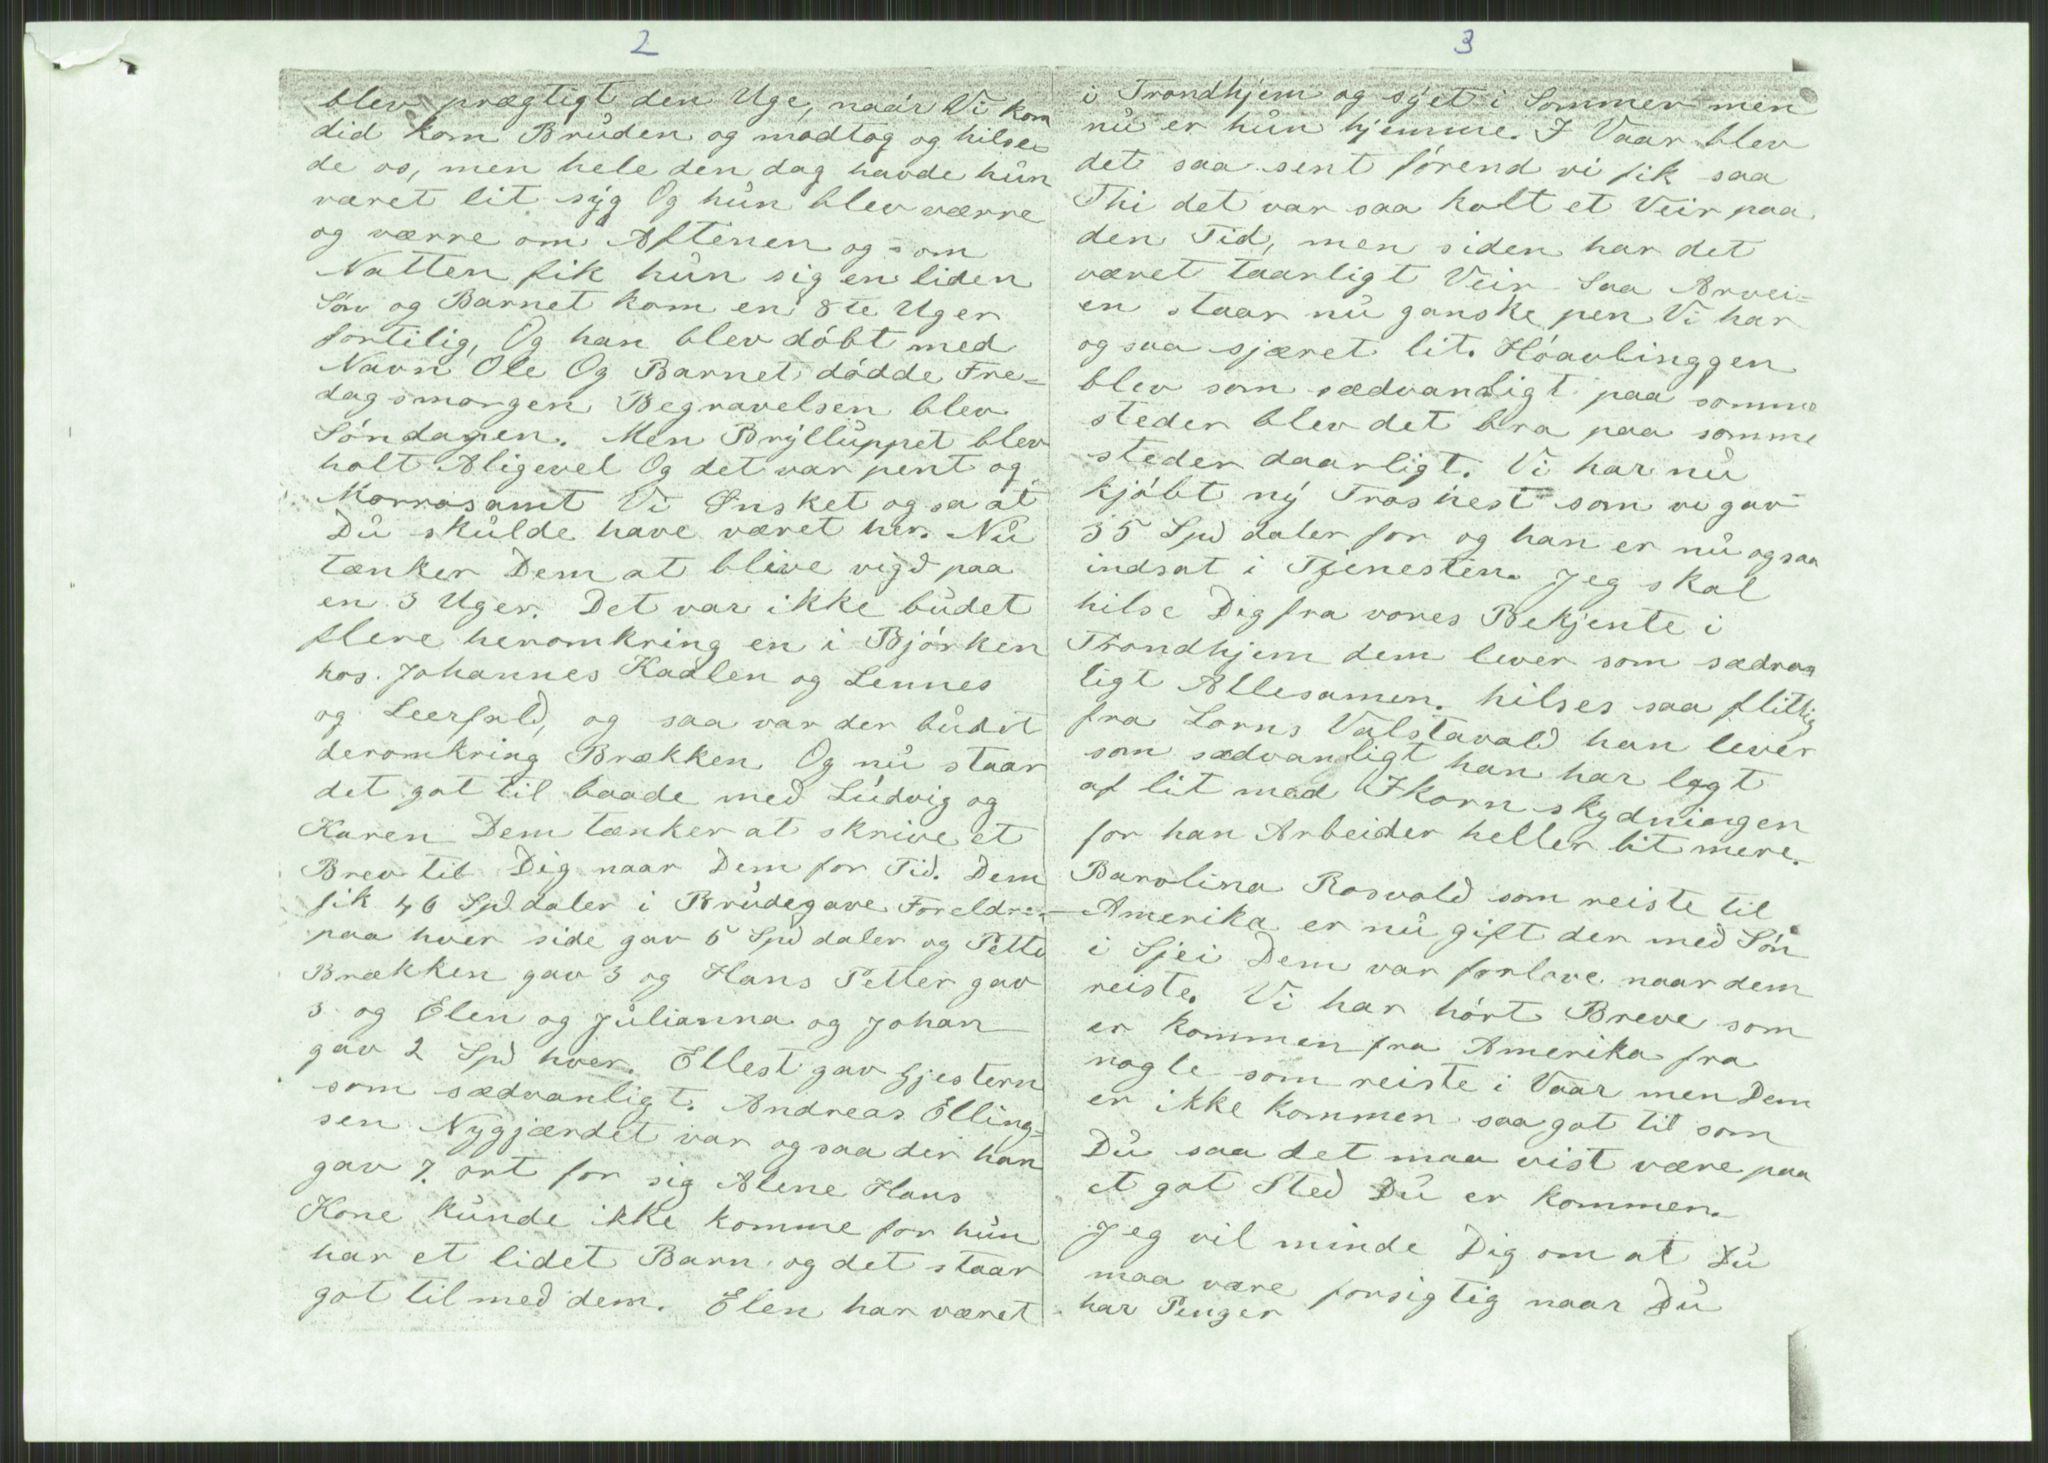 2
blev prægtigt den Uge, naar Vi kom
did kom Bruden og modtog og hilse-
de os, men hele den dag havde hun
været lit syg Og hun blev værre
og værre om Aftenen og som
Natten fik hun sig en liden
Søn og Barnet kom en 8te Uger
fortilig, Og han blev døbt med
Navn Ole Og Barnet dødde Fre-
dagsmorgen Begravelsen blev
Søndagen. Men Brylluppet blev
holt Aligevel Og det var pent og
Morrosamt Vi Ønsket ogsa at
Du skulde have været her. Nu
tænker Dem at blive vigd paa
en 3 Uger. Det var ikke budet
flere heromkring en i Bjørken
hos Johannes Kadlen og Lennes
og Leerfald, og saa var der budet
deromkring Brækken Og nu staar
det got til baade med Ludvig og
Karen Dem tænker at skrive et
Brev til Dig naar Dem for Tid. Dem
fik 46 Spd daler i Brudegave Foreldre
paa hver side gav 5 Spd daler og Petter
Brækken gav 3 og Hans Petter gav
3 og Elen og Julianna og Johan
gav 2 Spd hver. Ellest gav Gjestern
som sædvanligt. Andreas Elling-
sen Nygjærdet var ogsaa der han
gav 7. ort for sig Alene Hans
Kone kunde ikke komme for hun
har et lidet Barn og det staar
got til med dem. Elen har været
3
i Trondhjem og syet i Sommer men
nu er hun hjemme. I Vaar blev
det saa sent førend vi fik saa
Thi det var saa kolt et Veir paa
den Tid, men siden har det
været taarligt Veir Saa Arvei-
en staar nu ganske pen Vi har
ogsaa sjæret lit. Høavlinggen
blev som sædvanligt paa somme
steder blev det bra paa somme
steder daarligt. Vi har nu
kjøbt ny Troshest som vi gav
35 Spd daler for og han er nu ogsaa
indsat i Tjenesten. Jeg skal
hilse Dig fra vores Bekjente i
Trondhjem dem lever som sædvan
ligt Allesamen. hilses saa flittig
fra Lorns Valstavald han lever
som sædvanligt han har lagt
af lit med Ikornskydningen
for han Arbeider heller lit mere.
Barolina Rosvold som reiste til
Amerika er nu gift der med Søn
i Sjei Dem var forlove naar dem
reiste. Vi har hørt Breve som
er kommen fra Amerika fra
nogle som reiste i Vaar men Dem
er ikke kommen saa got til som
Du saa det maa vist være paa
et got Sted Du er kommen.
Jeg vil minde Dig om at Du
maa være forsigtig naar Du
har Penger